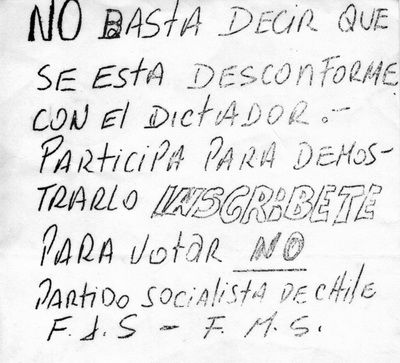 NO BASTA DECIR QUE
SE ESTA DESCONFORME
CON El DICTADOR.-
PARTICIPA PARA DEMOS-
TRARLO INSCRIBETE
PARA VOTAR NO
PARTIDO SOCIALISTA DE CHILE
F.J.S - F.M.S.